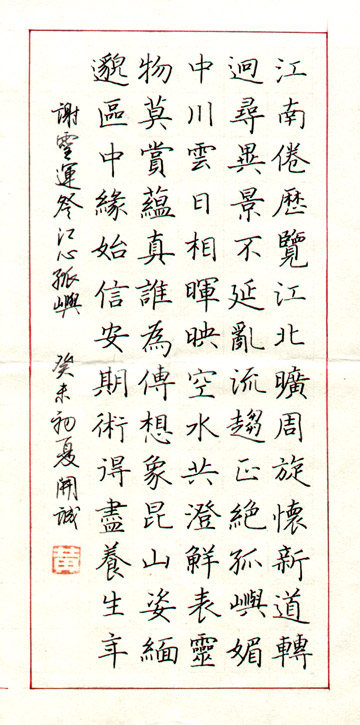 江南倦歷覽江北曠周旋懷新道轉
迥尋異景不延亂流趨正絕孤嶼媚
中川雲日相暉映空水共澄鮮表靈
物莫賞蘊真誰為傳想象昆山姿緬
邈區中緣始信安期術得盡養生年
謝靈運登江心孤嶼 癸未初夏開誠
黃